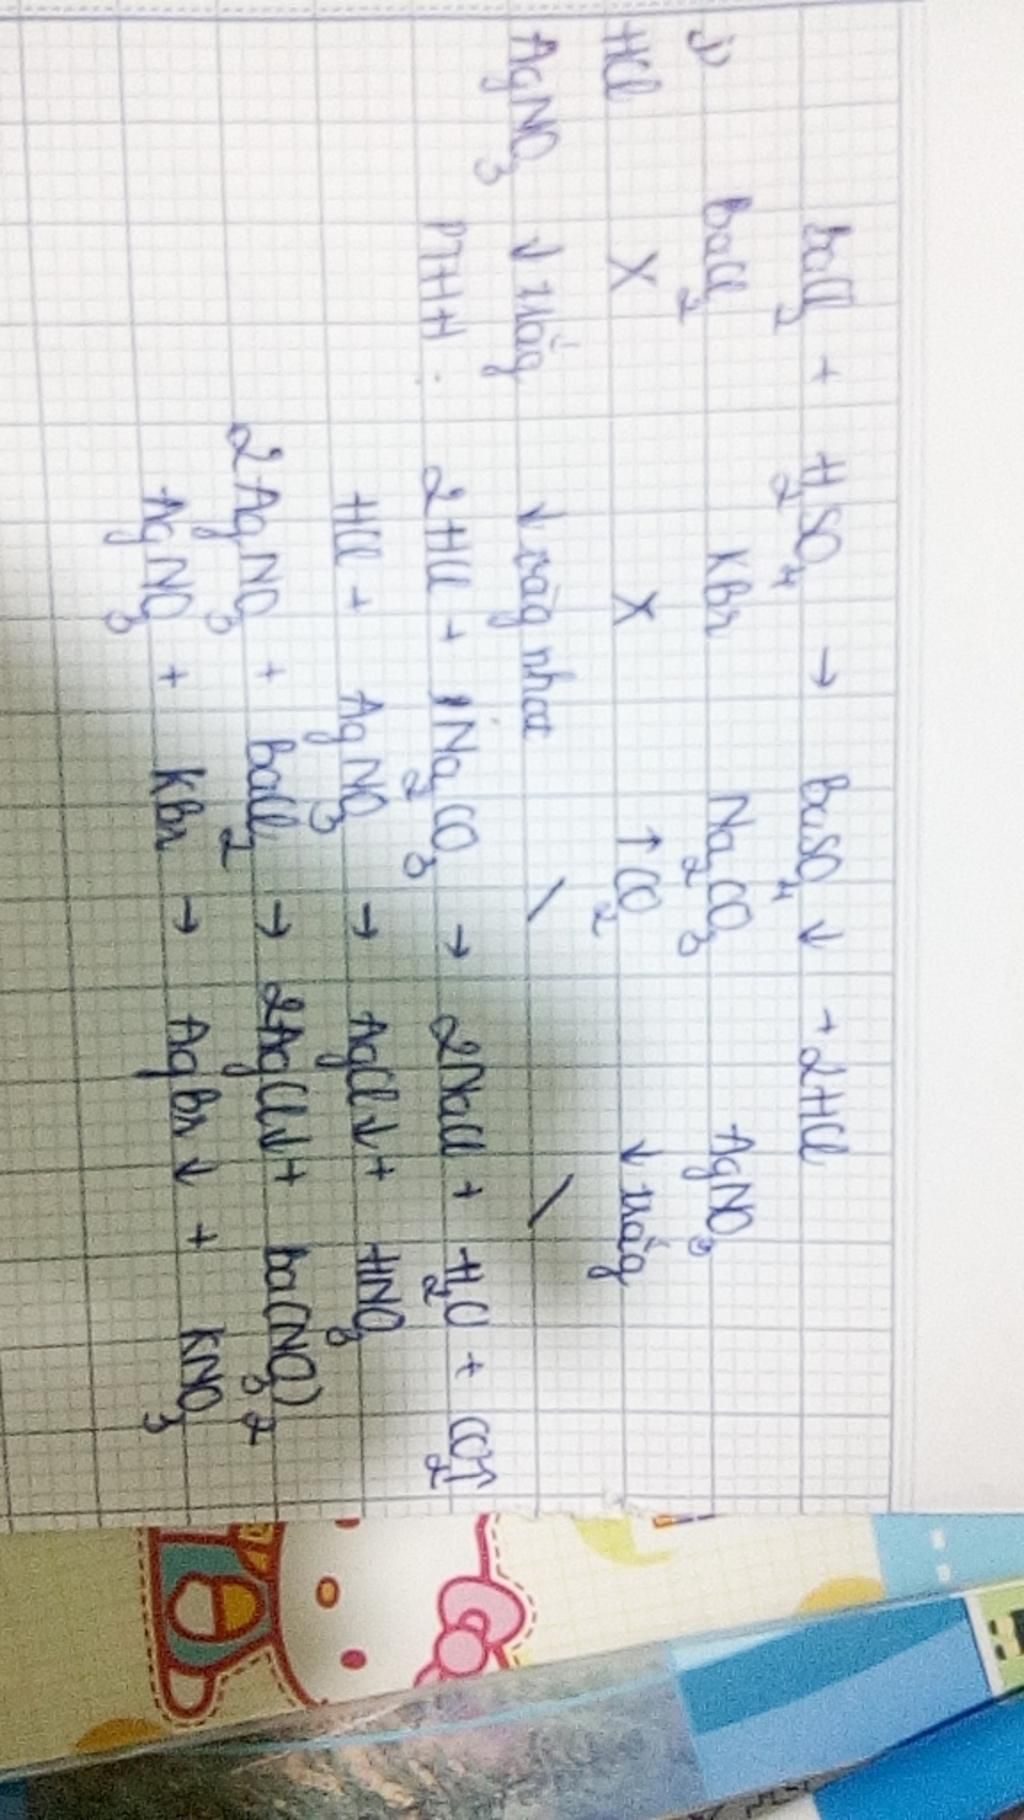 BaCl2 + H2SO4 → BaSO4 ↓ + 2HCl
j) BaCl2 KBr Na2CO3 AgNO3
HCl X X ↑CO2 ↓ trắg
AgNO3 ↓ trắg ↓ vàg nhạt \ \
PTHH: 2HCl + Na2CO3 → 2NaCl + H2O + CO2↑
HCl + AgNO3 → AgCl↓ + HNO3
2AgNO3 + BaCl2 → 2AgCl↓ + Ba(NO3)2
AgNO3 + KBr → AgBr ↓ + KNO3